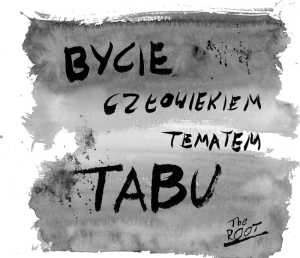 BYCIE
CZŁOWIEKIEM
TEMATEM
TABU
The
ROOT